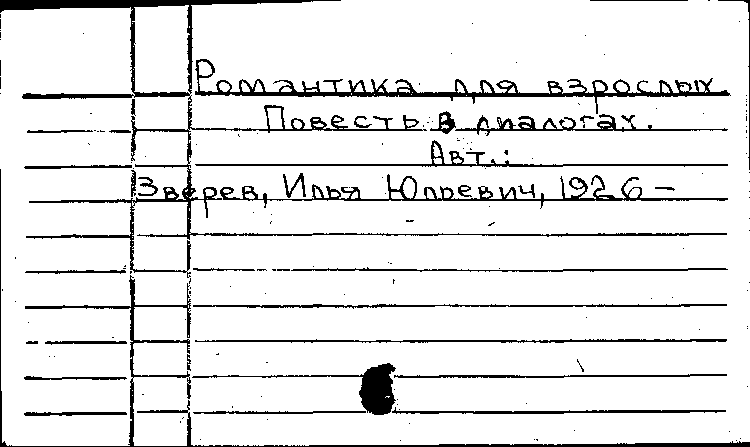 Романтика для взрослых.
Повесть в диалогах.
Авт.:
Зверев, Илья Юльевич, 1926 –